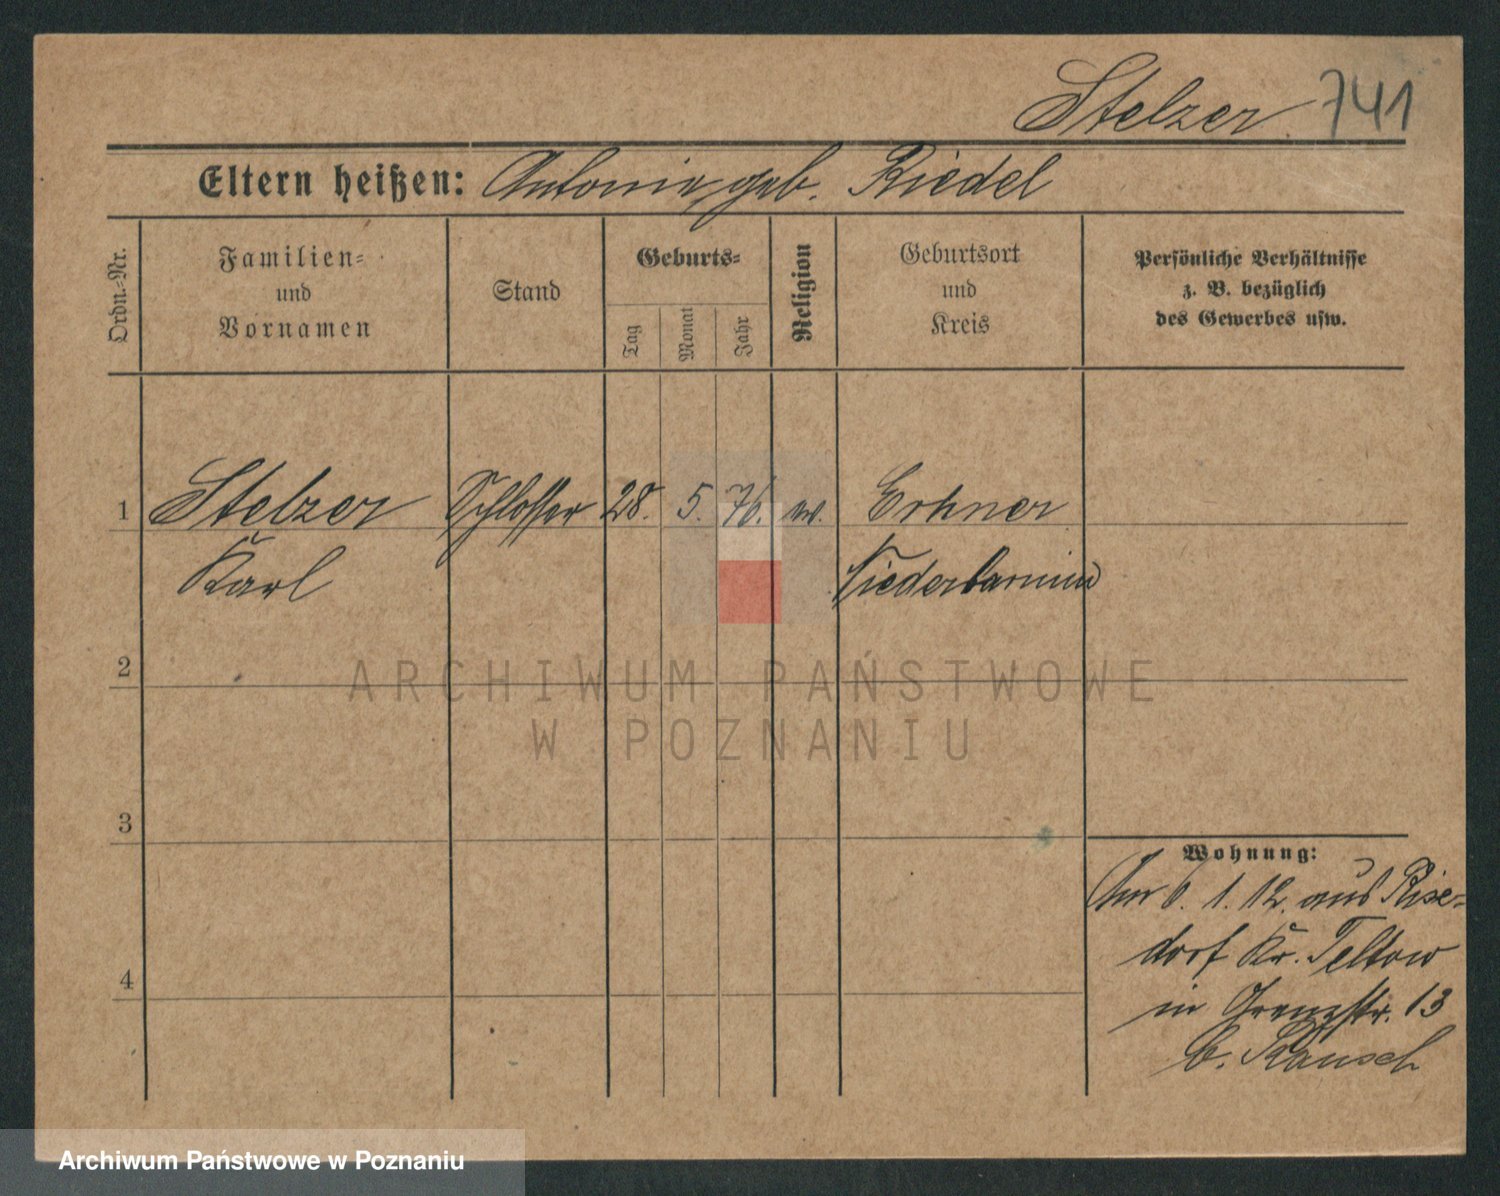 Stelzer. 741
Eltern heißen: Antonie geb. Riedel
Ordn.=Nr.
Familien=
und
Vornamen
Stand
Geburts=
Tag
Monat
Jahr
Religion
Geburtsort
und
Kreis
Persönliche Verhältnisse
z. B. bezüglich
des Gewerbes usw.
1 Stelzer Schlosser 28. 5. 76. ev. Erkner
Karl Niederbarnim
2
3
4
Wohnung:
Am 6. 1. 12. aus Rixe=
dorf Kr. Teltow
in Grenzstr. 13
b. Rausch
ARCHIWUM PAŃSTWOWE
W POZNANIU
Archiwum Państwowe w Poznaniu